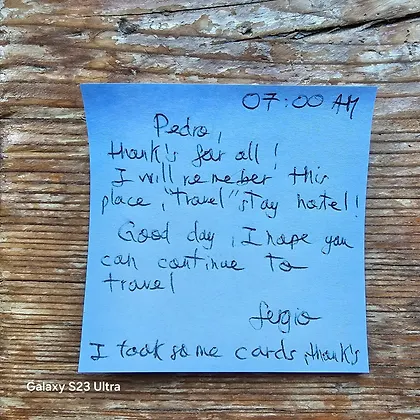 07:00 AM
Pedro,
thank's for all!
I will remeber this
place, "travel" stay hotel!
Good day, I hope you
can continue to
travel
Sergio
I took some cards, thank's
Galaxy S23 Ultra